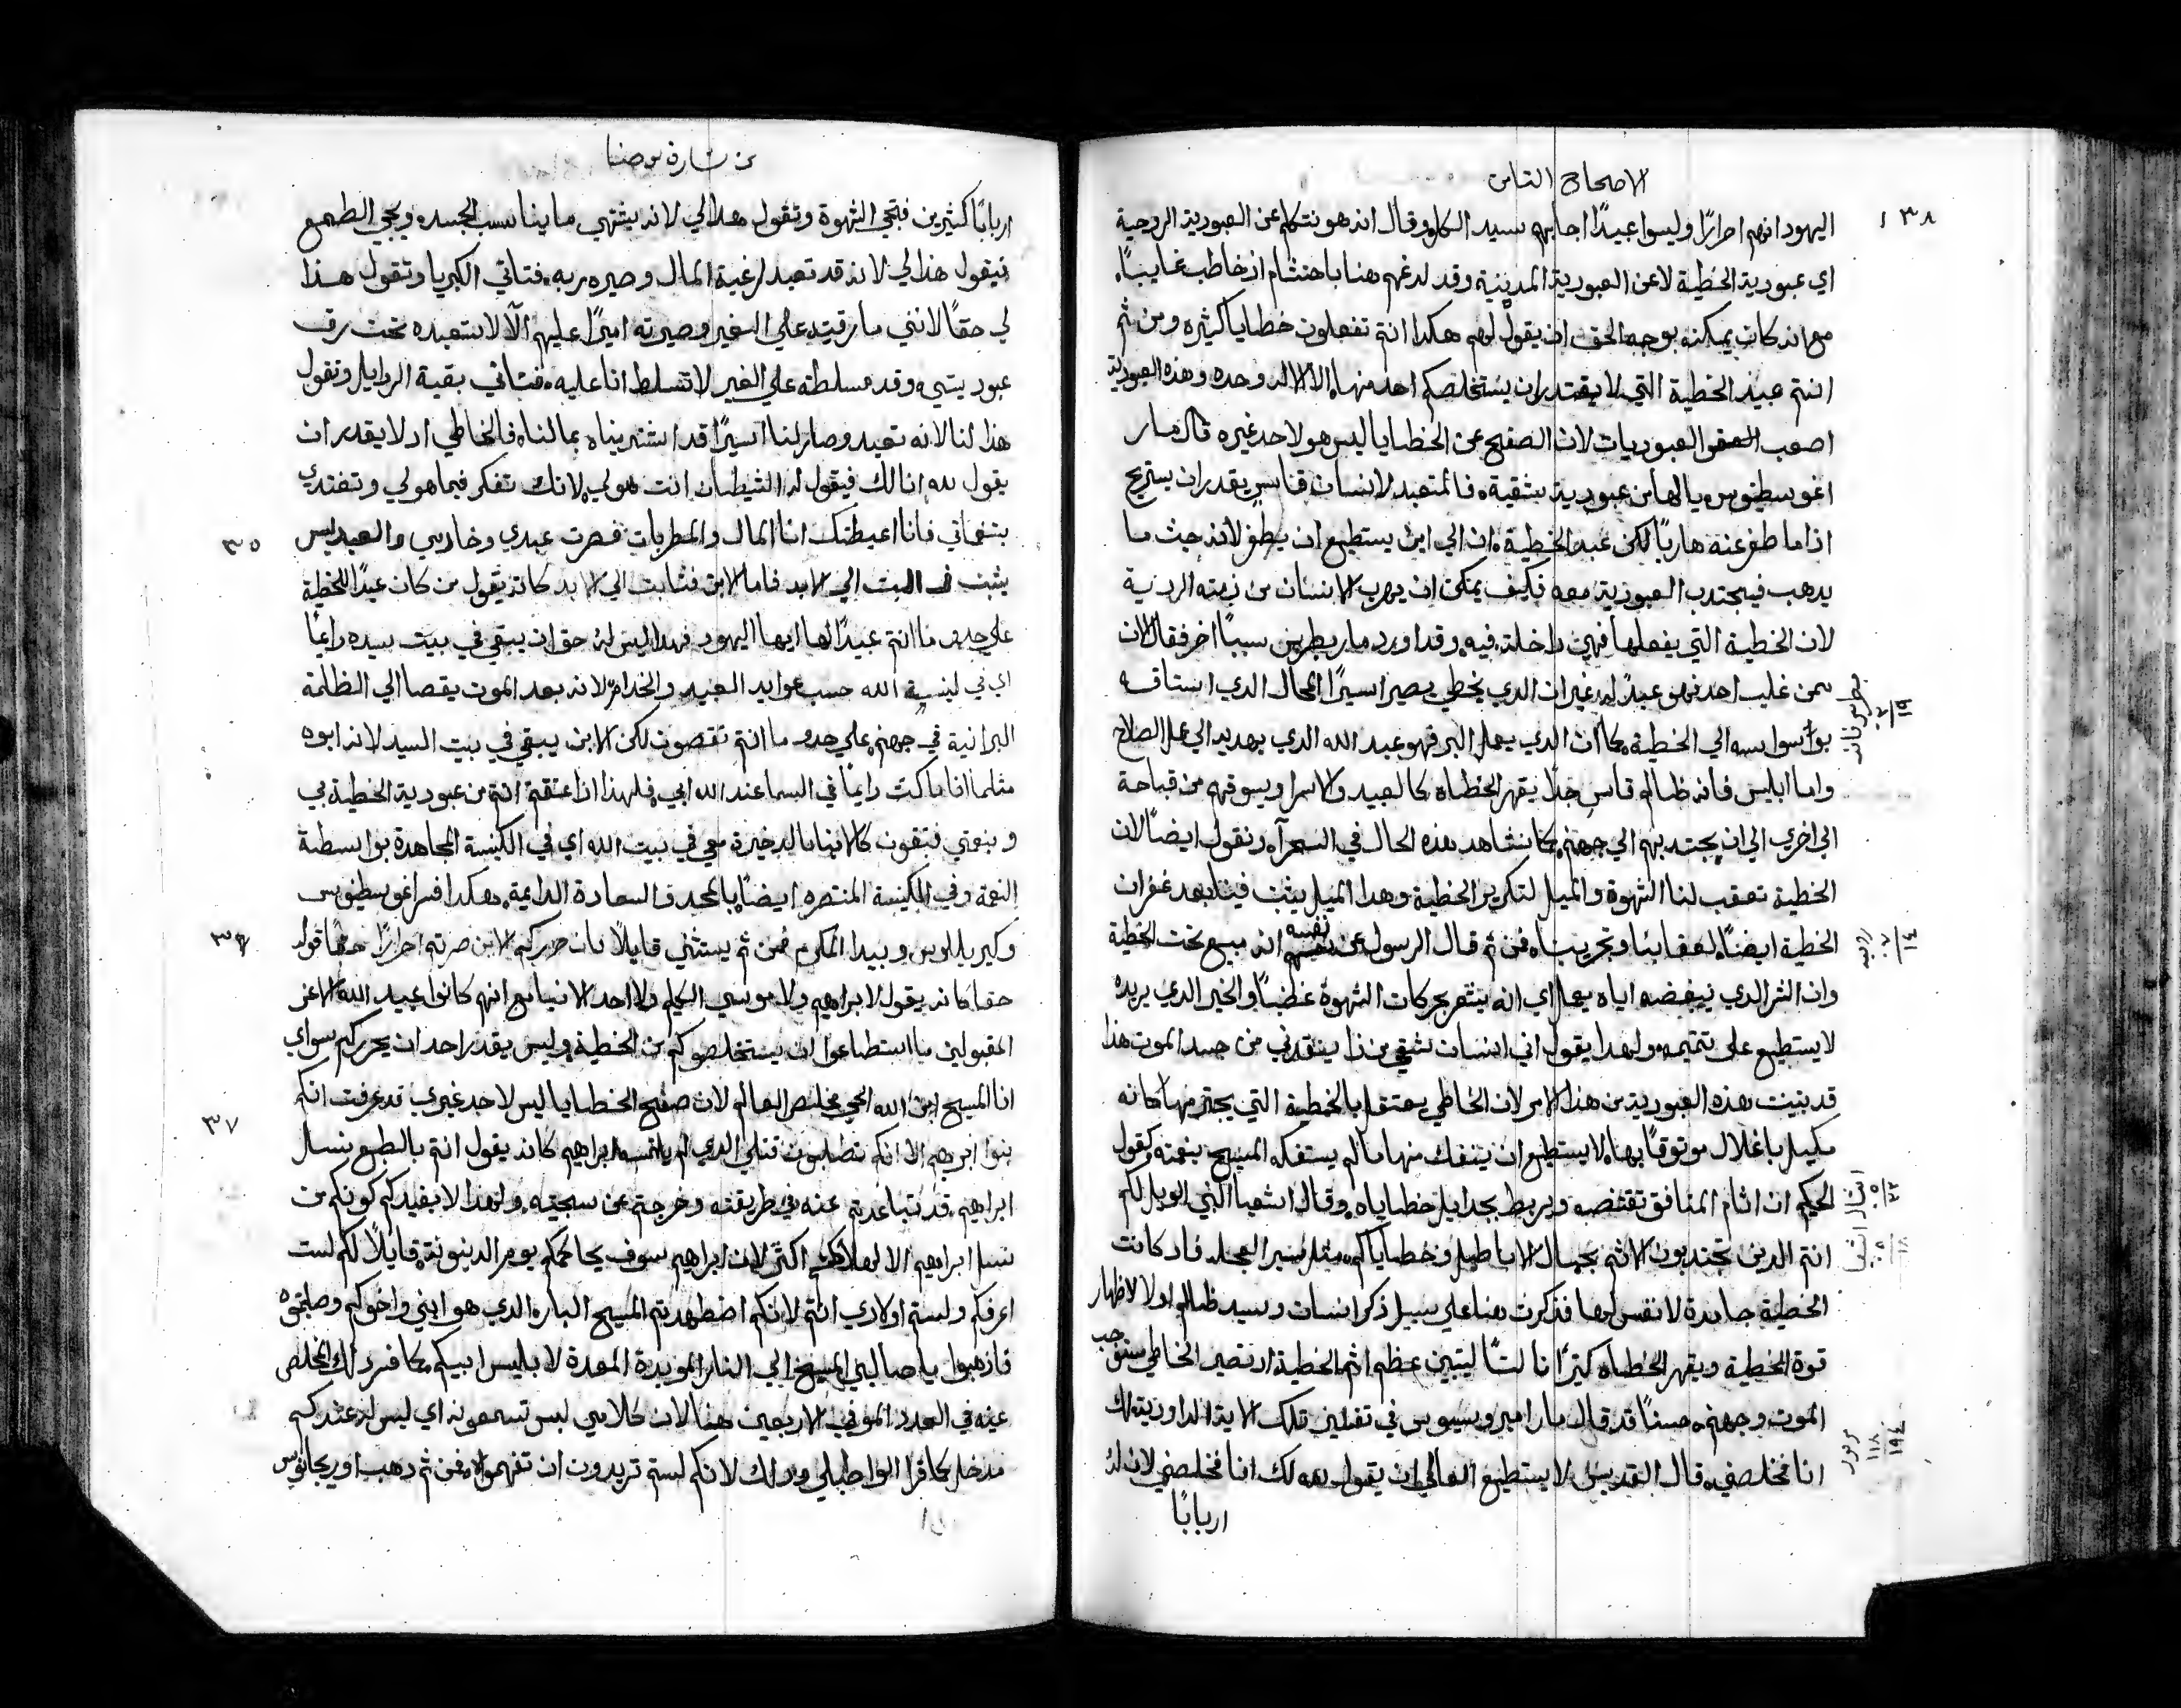 الاصحاح الثامن
١٣٨
اليهود انهم احرارًا وليسوا عبيدًا اجابهم سيد الكل وقال انه هو نتكلم عن العبودية الروحية
اي عبودية الخطية لا عن العبودية المدنية وقد لدغهم هنا باحتشام اذ خاطب غايبًا
مع انه كان يمكنه بوجه الحق ان يقول لهم هكدا انتم تفعلون خطايا كثيره ومن ثم
انتم عبيد الخطية التي لا يقتدر ان يستخلصكم احد منها الا الاله وحده وهذه العبودية
اصعب العبوديات لان الصفح عن الخطايا ليس هو لاحد غيره قال مار
اغوسطينوس يا لها من عبودية شقية فالمتعبد لانسان قناس يقدر ان يستريح
اذا ما طفر عنه هاربًا لكن عبد الخطية الي اين يستطيع ان يطفر لانه حيث ما
يدهب فيجتدب العبودية معه فكيف يمكن ان يهرب الانسان من نيته الردية
لان الخطية التي يفعلها فهي داخلة فيه وقد اورد مار بطرس سببًا اخر فقال لان
من غلب احد فهو عبدًا له غير ان الدي يخطي يصير اسيرًا المحال الدي استاقه
بوسواسه الي الخطية كما ان الدي يعمل البر فهو عبد الله الدي يهديه الي عمل الصلاح
واما ابليس فانه ظالم قاس جدًا يقهر الخطاه كالعبيد والاسرا ويسوقهم من قباحة
الي اخري الي ان يجتدبهم الي جهنم كما نشاهد هذه الحال في السحرآ ونقول ايضًا لان
الخطية تعقب لنا الشهوة والميل لتكرير الخطية وهدا الميل يثبت فينا بعد غفران
الخطية ايضًا لعقابنا وتجريبنا فمن ثم قال الرسول عن نفسه انه مبيع تحت الخطية
وان الشر الدي يبغضه اياه يعمل اي انه يشعر بحركات الشهوة غضبًا والخير الدي يريده
لا يستطيع علي تتميمه ولهدا يقول اني انسان شقي من ذا ينقدني من جسد الموت هذا
قد بنيت هده العبودية من هذا الامر لان الخاطي يعتقل بالخطية التي يجترمها كانه
مكبل باغلال موثوقًا بها لا يستطيع ان ينفك منها ما لم يستفكه المسيح بنعمته وكقول
الحكيم ان اثام المنافق تقتنصه ويربط بجدايل خطاياه وقال اشعيا النبي الويل لكم
انتم الدين تجتدبون الاثم بحبال الاباطيل وخطاياكم مثل سير العجله فاد كانت
الخطية جامدة لا نفس لها فذكرت هنا علي سبيل ذكر انسان وسيد ظالم اولا لاظهار
قوة الخطية ويقهر الخطاه كثيرًا ثالثًا ليتبين عظم اثم الخطية اد تصير الخاطي مستوجب
الموت وجهنم حسنًا قد قال مار امبروسيوس في تفسير تلك الاية الداودية لك
انا فخلصني قال القديس لا يستطيع العالمي ان يقول لله لك انا فخلصني لان له
اربابًا
بطرس ثانيه ٢ ١٩
روميه ٧ ١٤
امثال ٥ ٢٢
اشعيا ٥ ١٨
مزمور ١١٨ ٩٤
من بشارة يوحنا
اربابًا كثيرين فتجي الشهوة وتقول هدا لي لانه يشتهي ما يناسب الجسد ويجي الطمع
فيقول هذا لي لانه قد تعبد لرغبة المال وصيره ربه فتاتي الكبريا وتقول هذا
لي حقًا لانني ما رقيته علي الغير وصيرته اميرًا عليهم الا لاستعبده تحت رق
عبوديتي وقد سلطته علي الغير لاتسلط انا عليه فتاتي بقية الردايل وتقول
هذا لنا لانه تعبد وصار لنا اسيرًا قد اشتريناه بمالنا فالخاطي اد لا يقدر ان
يقول لله انا لك فيقول له الشيطان انت هو لي لانك تفكر فيما هو لي وتغتدي
فانا اعيطتك انا المال والمطربات فصرت عبدي وخادمي والعبد ليس
٣٥
يثبت في البيت الي الابد فاما الابن فثابت الي الابد كانه يقول من كان عبدًا للخطية
علي حدو ما انتم عبيدًا لها ايها اليهود فهدا ليس له حق ان يبقي في بيت سيده دايمًا
اي في كنيسة الله حسب عوايد العبيد والخدام لانه بعد الموت يقصا الي الظلمة
البرانية في جهنم علي حدو ما انتم تقصون لكن الابن يبقي في بيت السيد لانه ابوه
مثلما انا ماكث دايمًا في السما عند الله ابي فلهذا اذا عتقتم انتم من عبودية الخطية بي
وبنعمتي فتبقون كالابنا بالدخيرة معي في بيت الله اي في الكنيسة المجاهدة بواسطة
النعمة وفي الكنيسة المنتصره ايضًا بالمجد والسعادة الدايمة هكدا فسر اغوسطينوس
وكيريللوس وبيدا المكرم فمن ثم يستثني قايلًا فان حرركم الابن صرتم احرارًا حقًا قوله
٣٦
حقا كانه يقول لا ابراهيم ولا موسي الكليم ولا احد الانبيا مع انهم كانوا عبيد الله الاعز
المقبولين ما استطاعوا ان يستخلصوكم من الخطية وليس يقدر احد ان يحرركم سواي
انا المسيح ابن الله الحي مخلص العالم لان صفح الخطايا ليس لاحد غيري قد عرفت انكم
٣٧
بنوا ابرهيم الا انكم تطلبون قتلي الدي لم يلتمسه ابراهيم كانه يقول انتم بالطبع نسال
ابراهيم قد تباعدتم عنه في طريقته وخرجتم عن سجيته ولهدا لا يفيدكم كونكم من
نسل ابراهيم الا لهلاككم اكثر لان ابراهيم سوف يحاكمكم يوم الدينونة قايلًا لكم لست
اعرفكم ولستم اولادي انتم لانكم اضطهدتم المسيح البار الدي هو ابني واخوكم وصلبتموه
فازهبوا يا صالبي المسيح الي النار الموبدة المعدة لابليس ابيكم كما فسر دلك المخلص
عينه في العدد الموفي الاربعين هنا لان كلامي ليس تسمعونه اي ليس له عندكم
مدخل كما قرا الواطيلي ودلك لانكم لستم تريدون ان تفهموه فمن ثم دهب اوريجانوس